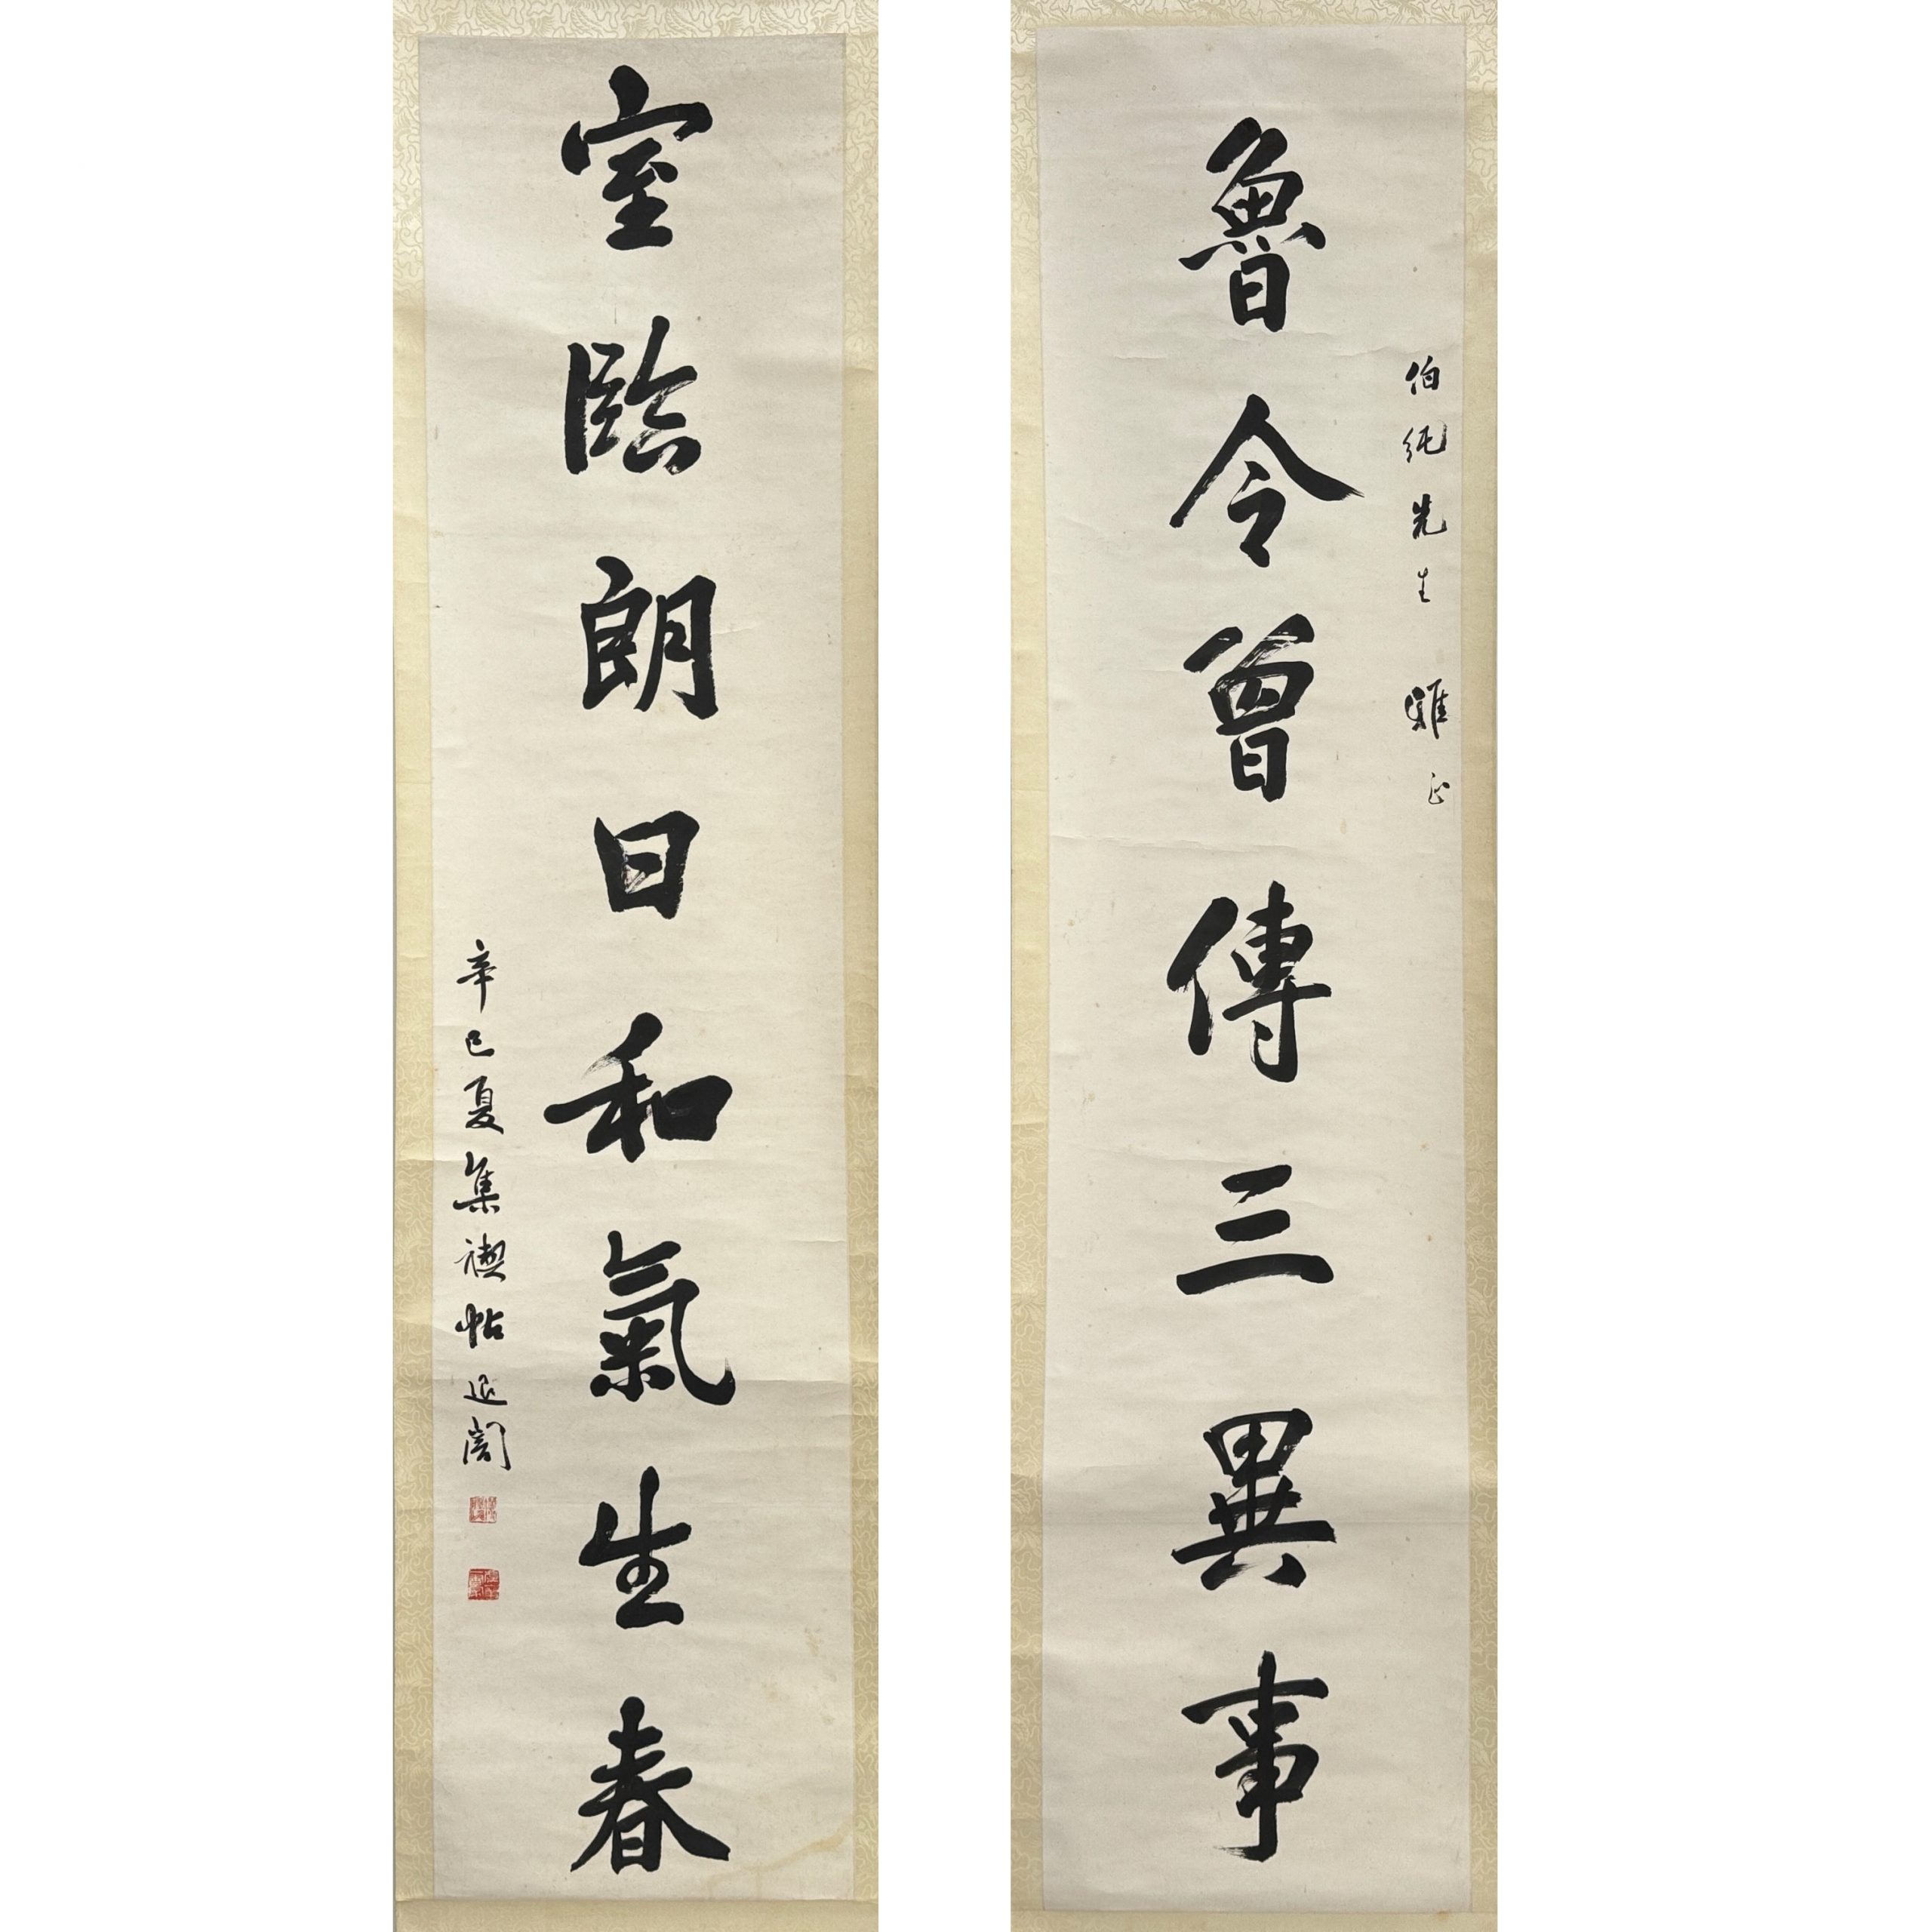 伯純先生雅正
魯令曾傳三異事
室臨朗日和氣生春
辛巳夏集禊帖退闇